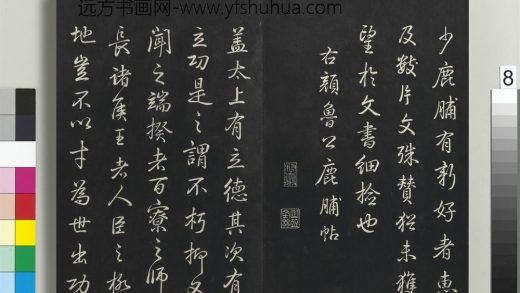 远方书画网-www.yfshuhua.com
少鹿脯有新好者惠
及数片文殊赞犹未获
望于文书细捡也
右颜鲁公鹿脯帖
盖太上有立德其次有
立功是之谓不朽抑又
闻之端揆者百寮之师
長诸侯王者人臣之极
地岂不以才为世出功
8